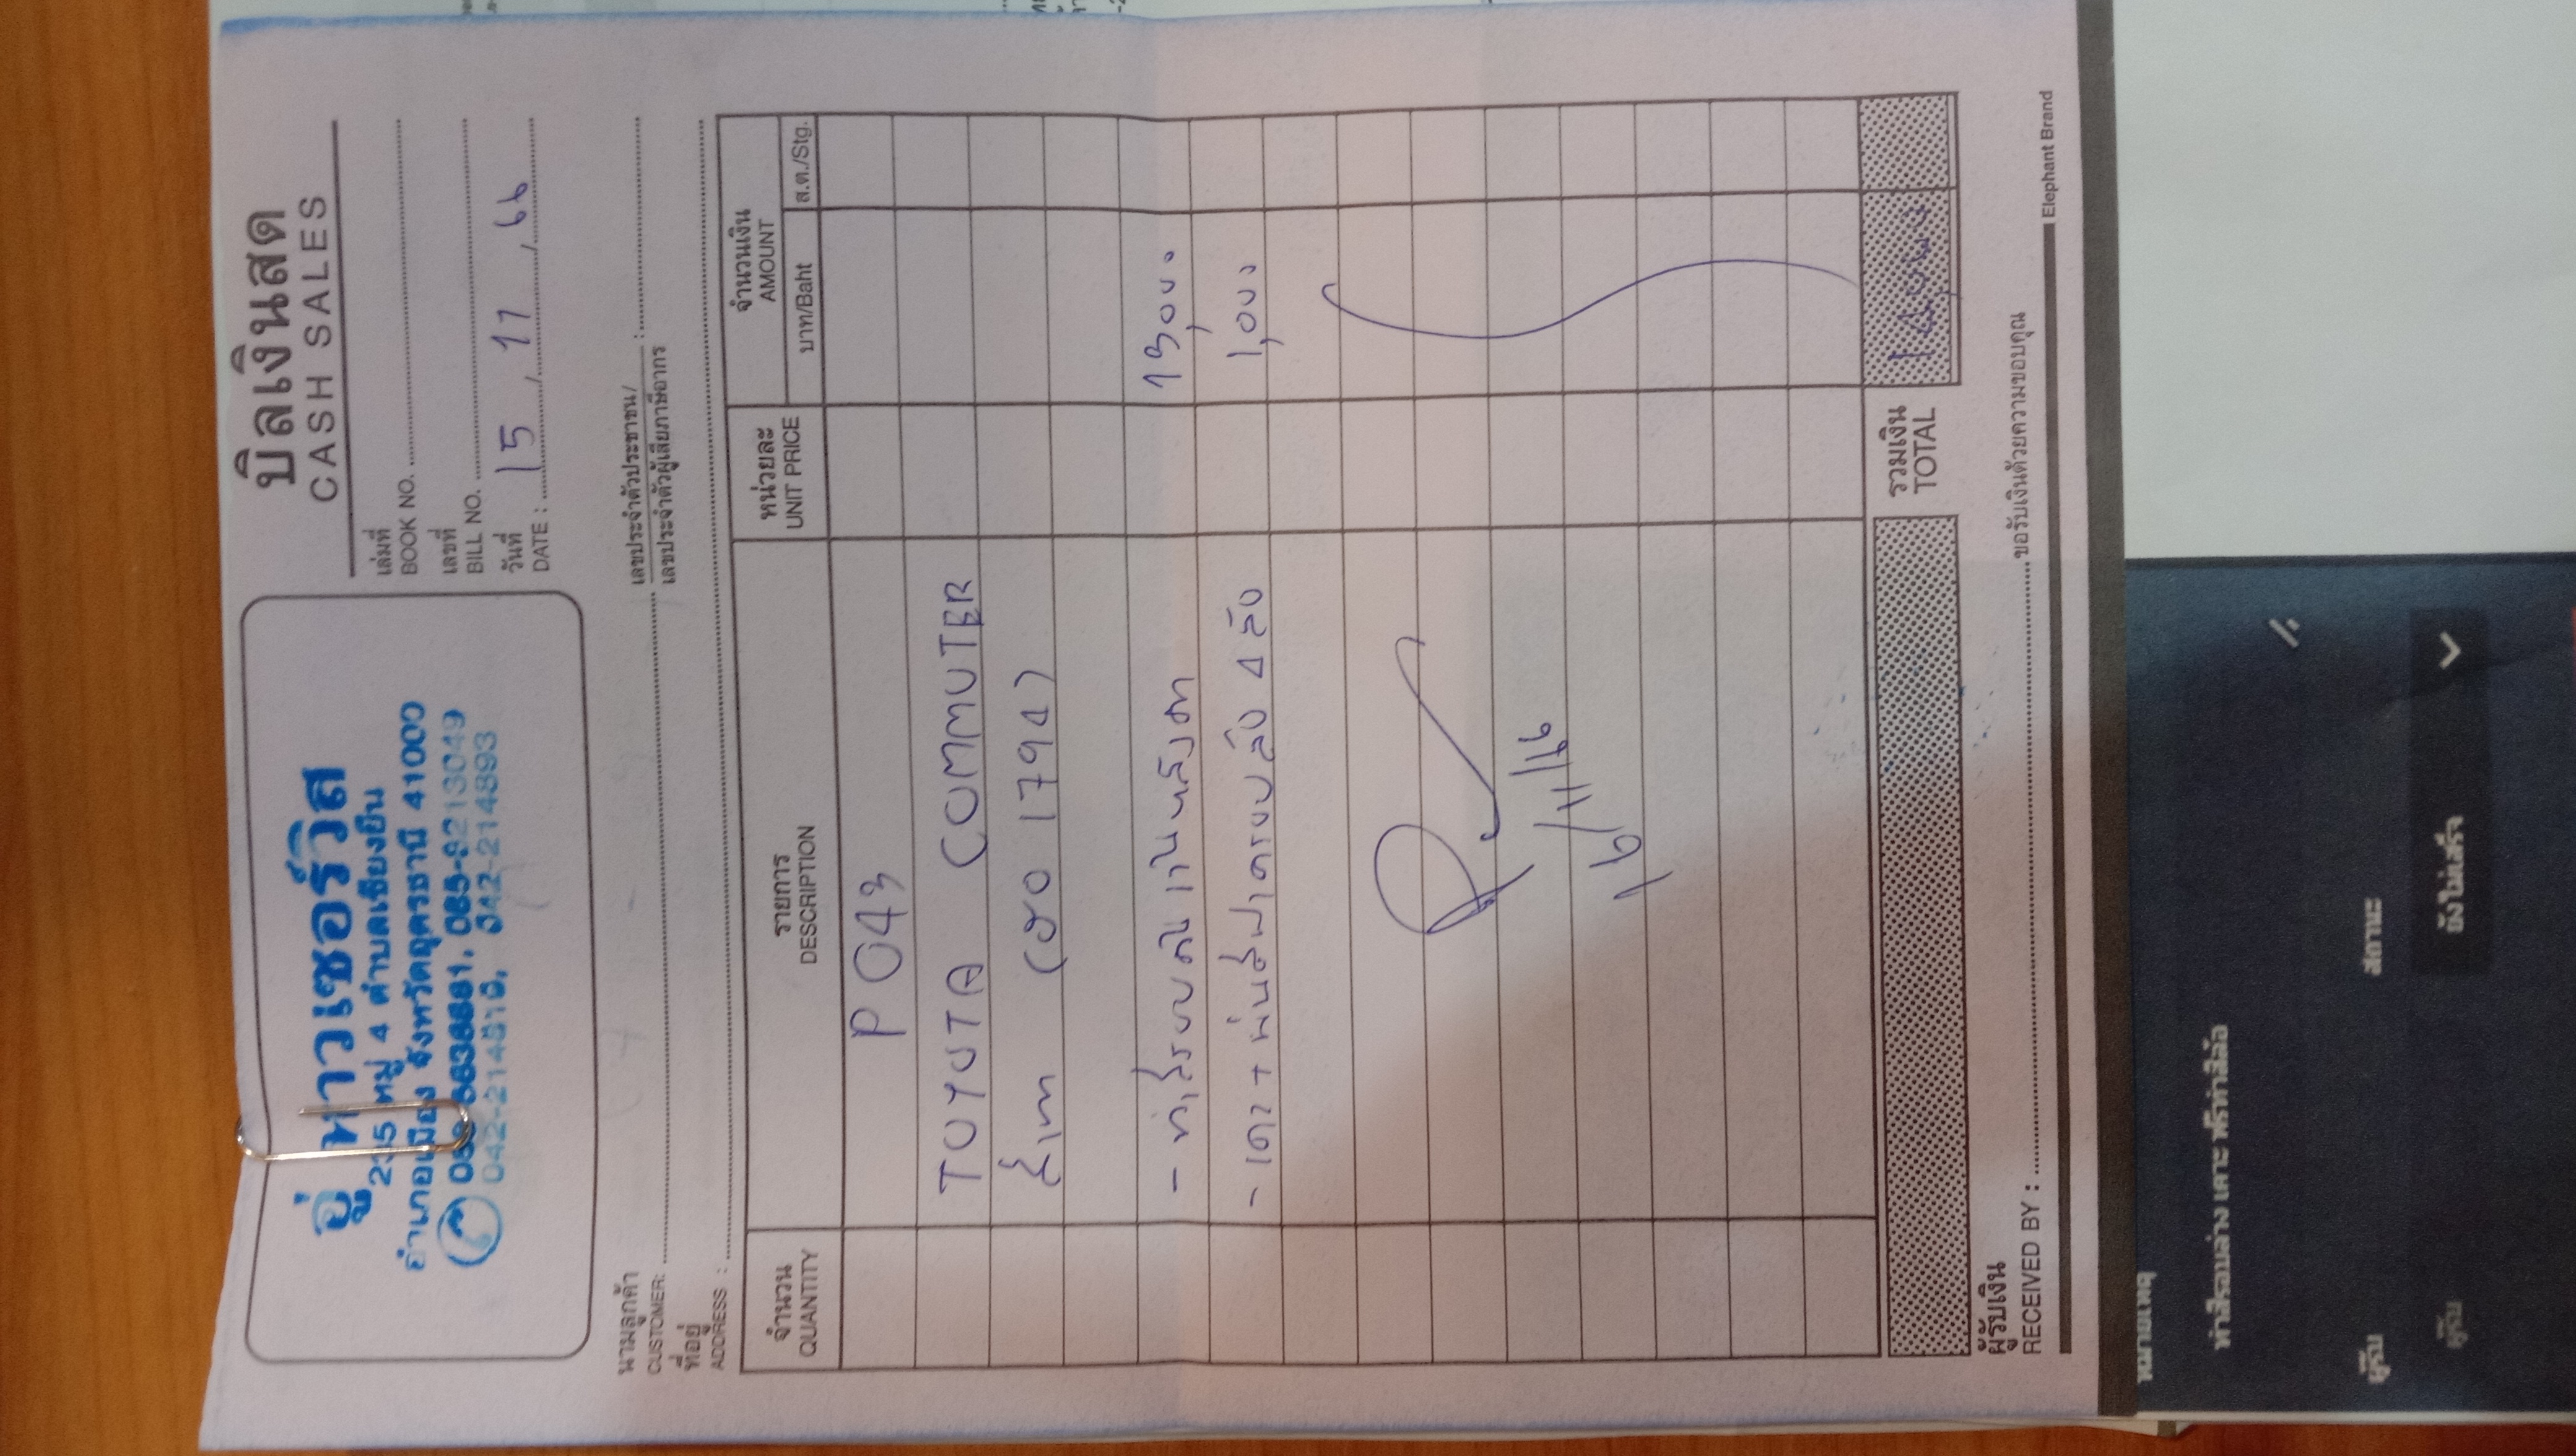 อู่ ทาวเซอร์วิส
235 หมู่ 4 ตำบลเชียงยืน
อำเภอเมือง จังหวัดอุดรธานี 41000
042-214893
บิลเงินสด
CASH SALES
เล่มที่
BOOK NO.
เลขที่
BILL NO.
วันที่
DATE : 15 / 11 / 66
นามลูกค้า
CUSTOMER:
เลขประจำตัวประชาชน/
เลขประจำตัวผู้เสียภาษีอากร :
ที่อยู่
ADDRESS :
จำนวน รายการ หน่วยละ จำนวนเงิน
QUANTITY DESCRIPTION UNIT PRICE AMOUNT
บาท/Baht ส.ต./Stg.
P 043
TOYOTA COMMUTER
สีเทา (ฮอ 1794)
- ทำสีรอบคัน เว้นหลังคา 13,000
- เคาะ + พ่นสีฝาครอบล้อ 4 ล้อ 1,000
16/11/66
รวมเงิน
TOTAL 14,000
ผู้รับเงิน
RECEIVED BY : ขอรับเงินด้วยความขอบคุณ
Elephant Brand
หมายเหตุ
ทำสีรอบล่าง เคาะ ฟรีทำสีล้อ
สถานะ
ยังไม่เสร็จ